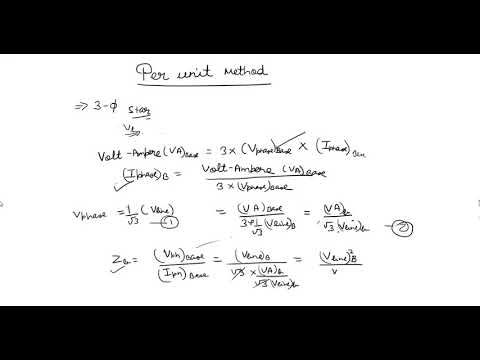 Per unit method
⇒ 3-φ Star
V_L
Volt-Ampere (VA)_Base = 3 × (V_phase)_Base × (I_phase)_Base
(I_phase)_B = Volt-Ampere (VA)_Base / 3 × (V_phase)_Base
V_phase = 1/√3 (V_line) —① = (VA)_Base / 3 × 1/√3 (V_line)_B = (VA)_B / √3 (V_line)_B —②
Z_B = (V_ph)_Base / (I_ph)_Base = (V_line)_B / √3 × (VA)_B / √3 (V_line)_B = (V_line)²_B / V